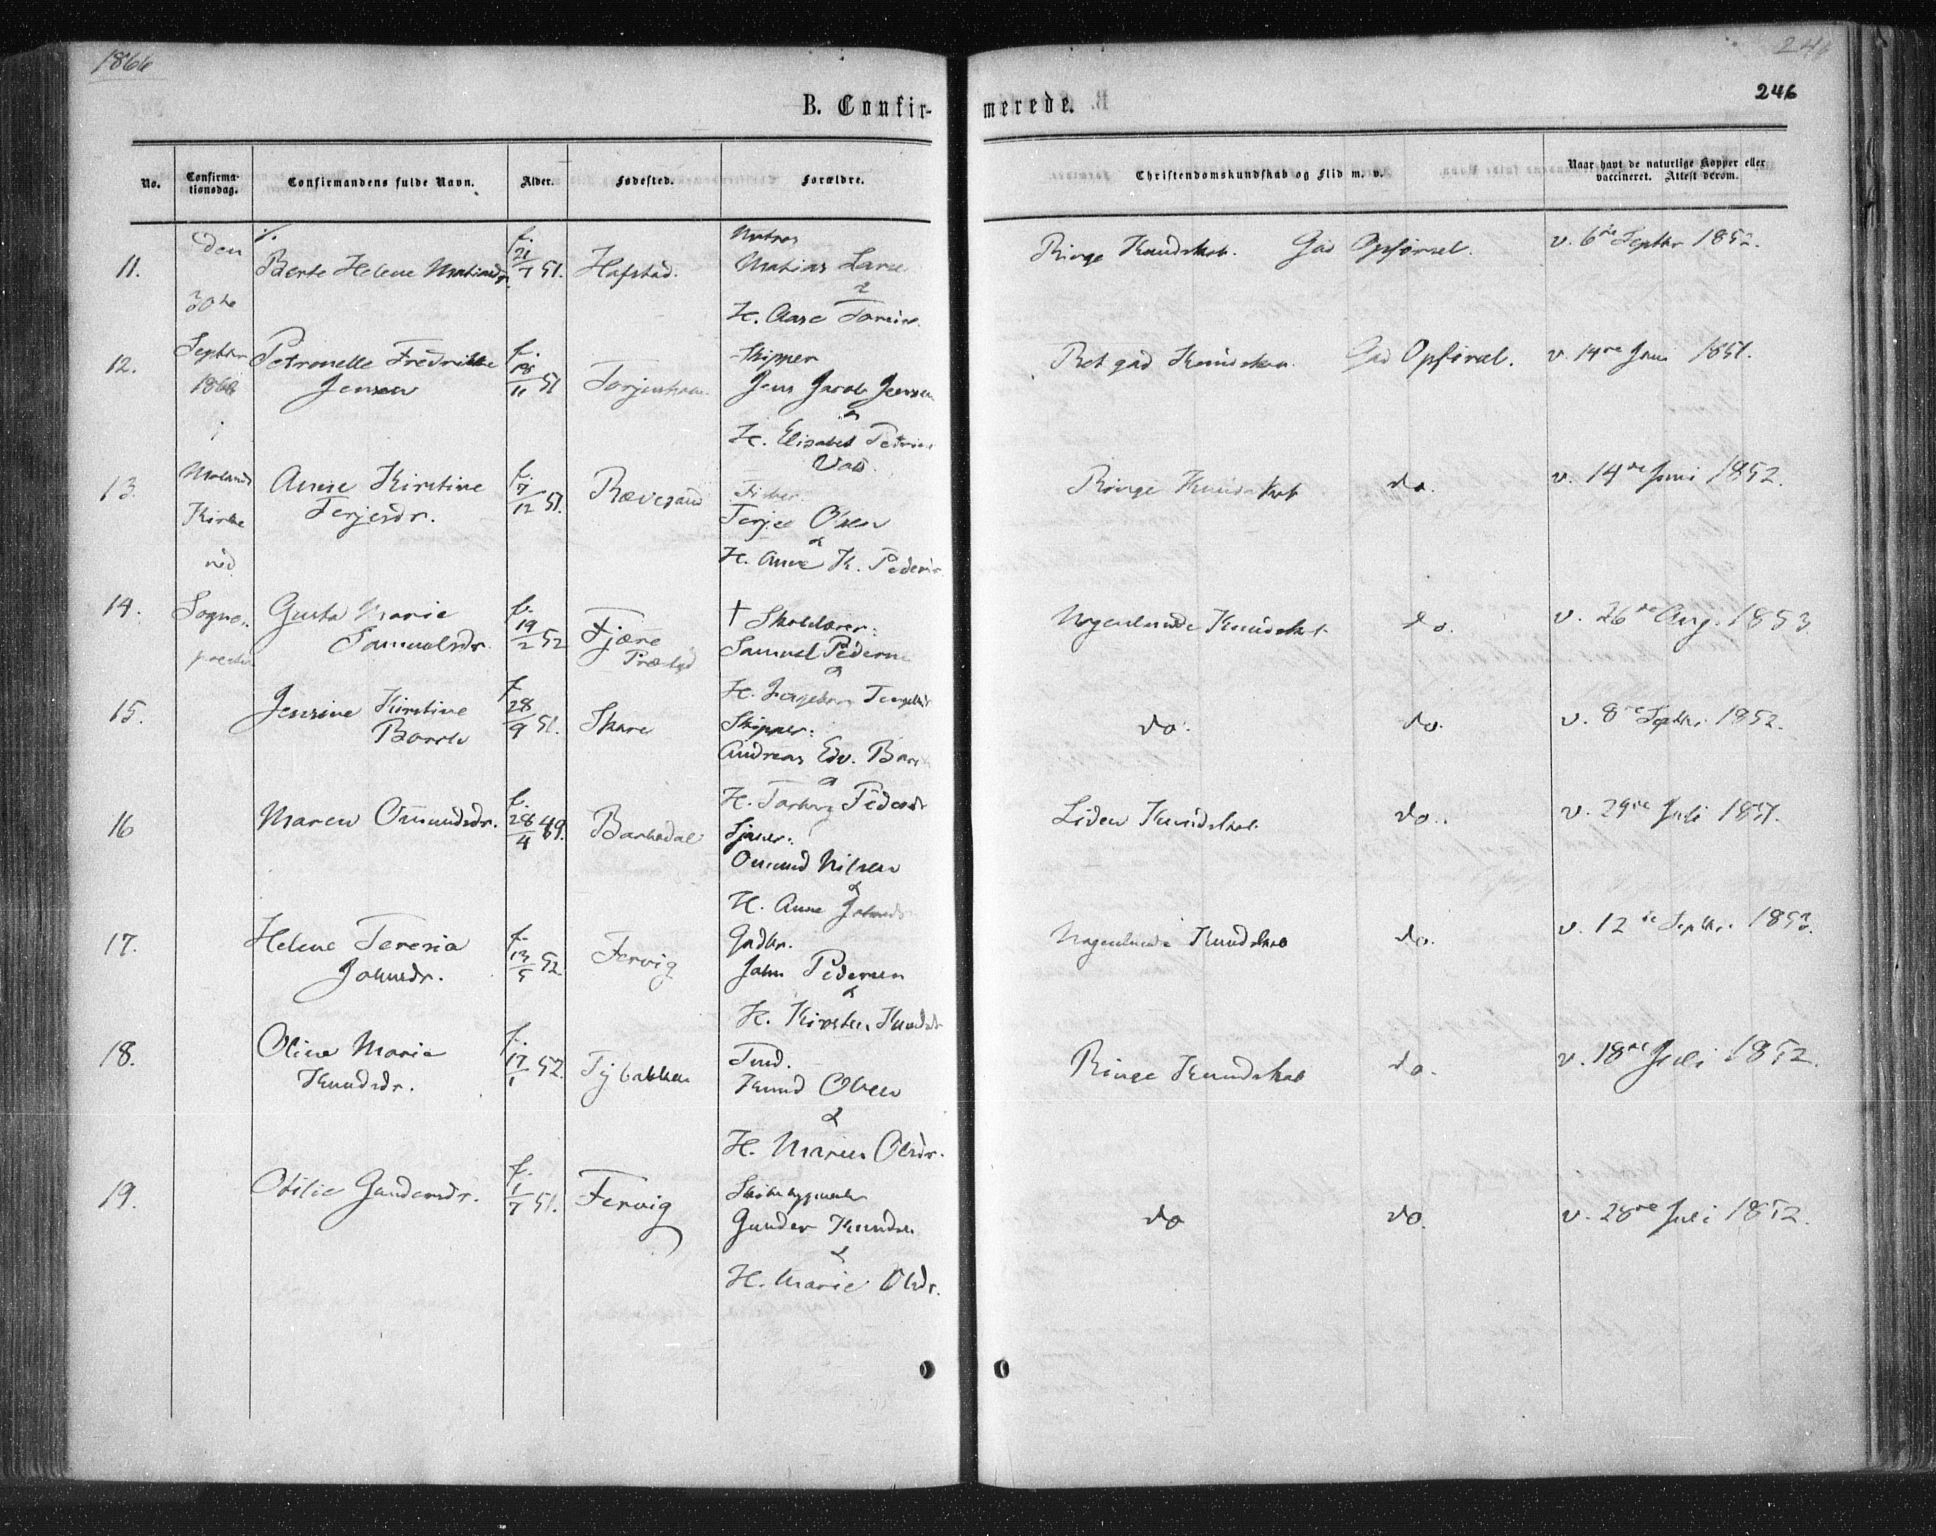 1866
246
246
B. Confirmerede.
No. Confirmationsdag. Confirmandens fulde Navn. Alder. Fødested. Forældre. Christendomskundskab og Flid m. v. Naar havt de naturlige Kopper eller vaccineret. Attest derom.
den
30te
Septbr
1866
i
Molands
Kirke
ved
Sogne-
11. Berte Helene f. 21/7 51. Hafstad. Matros
Matias
&
H. Aase
Ringe Kundskab. God Opførsel. v. 6te Septbr 1852.
12. Petronelle Fredrikke f. 18/11 51 Skipper
Jensen Jens Jacob Jensen
&
H. Elisabet
Ret god Kundskab. God Opførsel. v. 14de Juni 1851.
13. Anne Kirstine f. 7/12 51. Rævesand Fisker.
Terjesdr. Terje Olsen
&
H. Anne K. Pedersdr
Ringe Kundskab do. v. 14de Juni 1852.
14. Gusta Marie f. 19/2 52 Fjære † Skolelærer:
Samuelsdr. Præstgd Samuel Pedersen
&
H. Ingeborg
Nogenlunde Kundskab do. v. 26de Aug. 1853
15. Jensine Kirstine f. 28/9 51. Skare Skipper:
Andreas Edv.
&
H. Pedersdr
do. do. v. 8de Septbr. 1852.
16 Maren Omundsdr. f. 28/4 49. Barbodal
Omund Nilsen
&
H. Anne
Liden Kundskab do. v. 29de Juli 1851.
17. Helene Teresia f. 13/5 52 Fervig Gadbr.
Johnsdr. John Pedersen
&
H. Kirsten Knudsdr
Nogenlunde Kundskab do. v. 12te Septbr. 1853.
18. Oline Marie f. 17/1 52. Tybakken Tmd.
Knudsdr. Knud Olsen
&
H. Maren Olsdr.
Ringe Kundskab do. v. 18de Juli 1852.
19. Otilie Gundersdr. f. 1/7 51. Fervig Skibsbygmester
Gunder Knudsen
&
H. Marie Olsdr.
do do. v. 28de Juli 1852.